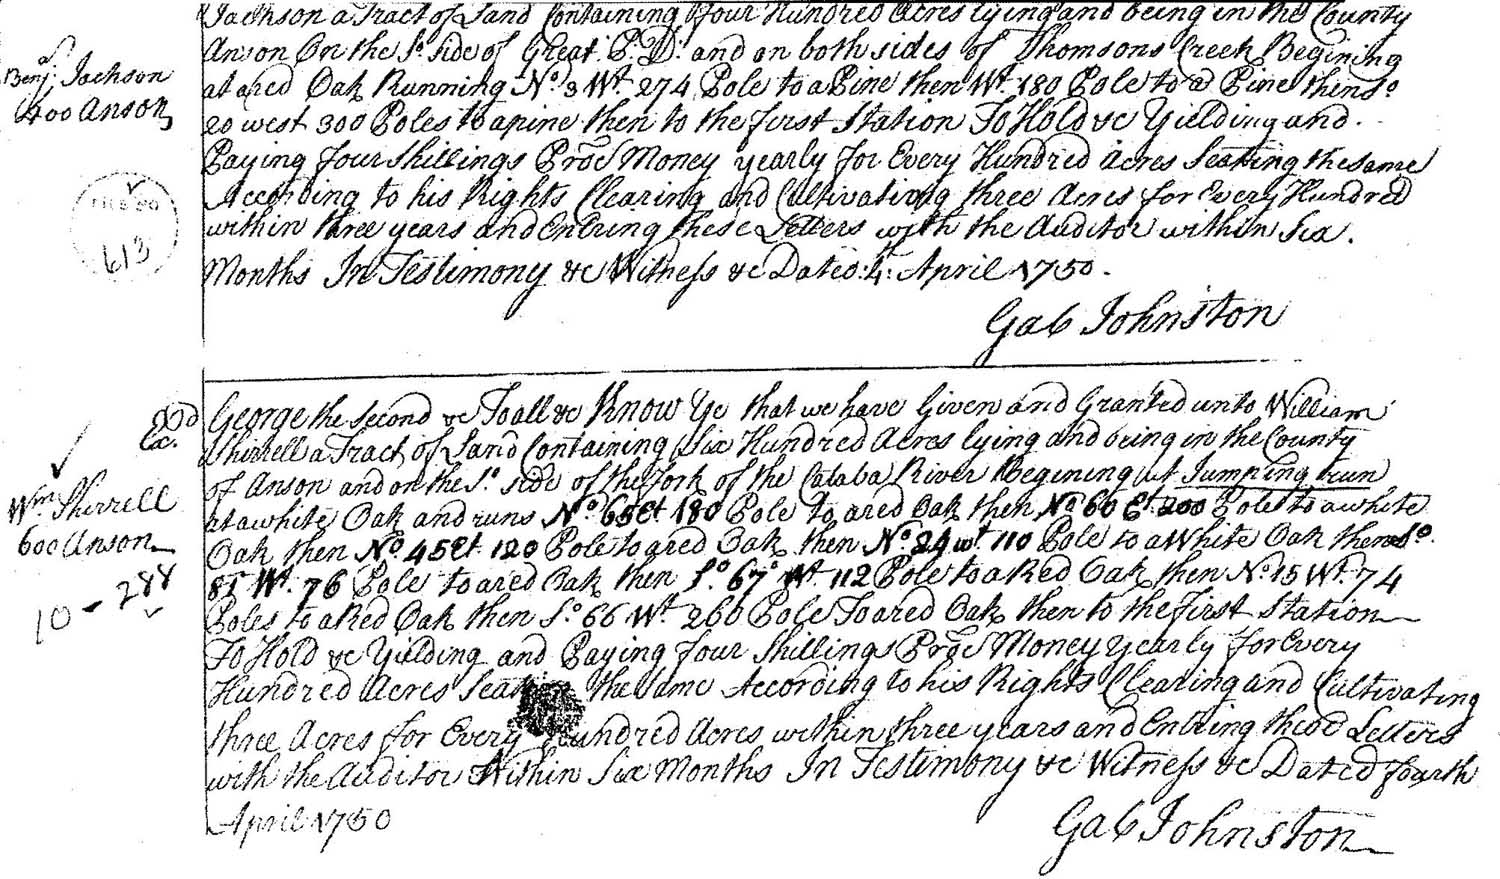 Jackson a Tract of Land Containing four Hundred Acres lying and being in the County
Anson On the So. side of Great P. D. and on both sides of Thomsons Creek Begining
at a red Oak Running No. 3 Wt. 274 Pole to a Pine then Wt. 180 Pole to a Pine then So.
20 west 300 Poles to a pine then to the first Station To Hold &c Yielding and
Paying four shillings Proc Money yearly for Every Hundred Acres Seating the same
According to his Rights Clearing and Cultivating three Acres for Every Hundred
within three years and Entring these Letters with the Auditor within Six
Months In Testimony &c Witness &c Dated 4 April 1750.
Gab Johnston
Benj. Jackson
400 Anson
FILE NO
613
George the Second &c To all &c Know Ye that we have Given and Granted unto William
Shirrell a Tract of Land Containing Six Hundred Acres lying and being in the County
of Anson and on the So. side of the fork of the Cataba River Begining at Jumping run
at a white Oak and runs No. 65 Et 180 Pole to a red Oak then No 60 Et. 200 Poles to a white
Oak then No. 45 Et. 120 Pole to a red Oak then No. 24 wt. 110 Pole to a White Oak then So.
85 Wt. 76 Pole to a red Oak then So. 67° Wt. 112 Pole to a Red Oak then No. 15 Wt. 74
Poles to a Red Oak then So. 66 Wt. 260 Pole To a red Oak then to the first Station
To Hold &c Yielding and Paying four Shillings Proc Money Yearly for Every
Hundred Acres the same According to his Rights Clearing and Cultivating
three Acres for Every Hundred Acres within three years and Entring these Letters
with the Auditor Within Six Months In Testimony &c Witness &c Dated fourth
April 1750
Gab Johnston
Ex.
Wm. Sherrell
600 Anson
10 - 288